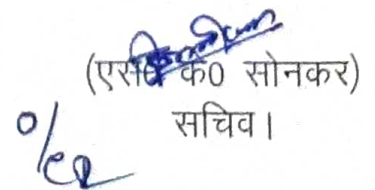 (एस0 के0 सोनकर)
सचिव।